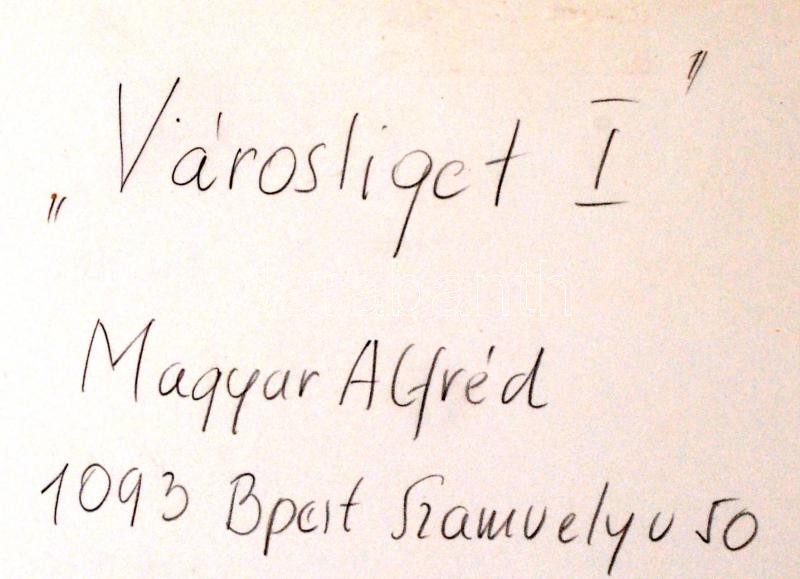 „Városliget I"
Magyar Alfréd
1093 Bpest Szamuely u 50